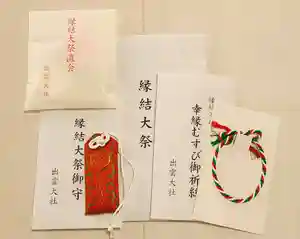 縁結大祭直会
出雲大社
縁結大祭
縁結大祭御守
出雲大社
幸縁むすび御祈絲
出雲大社